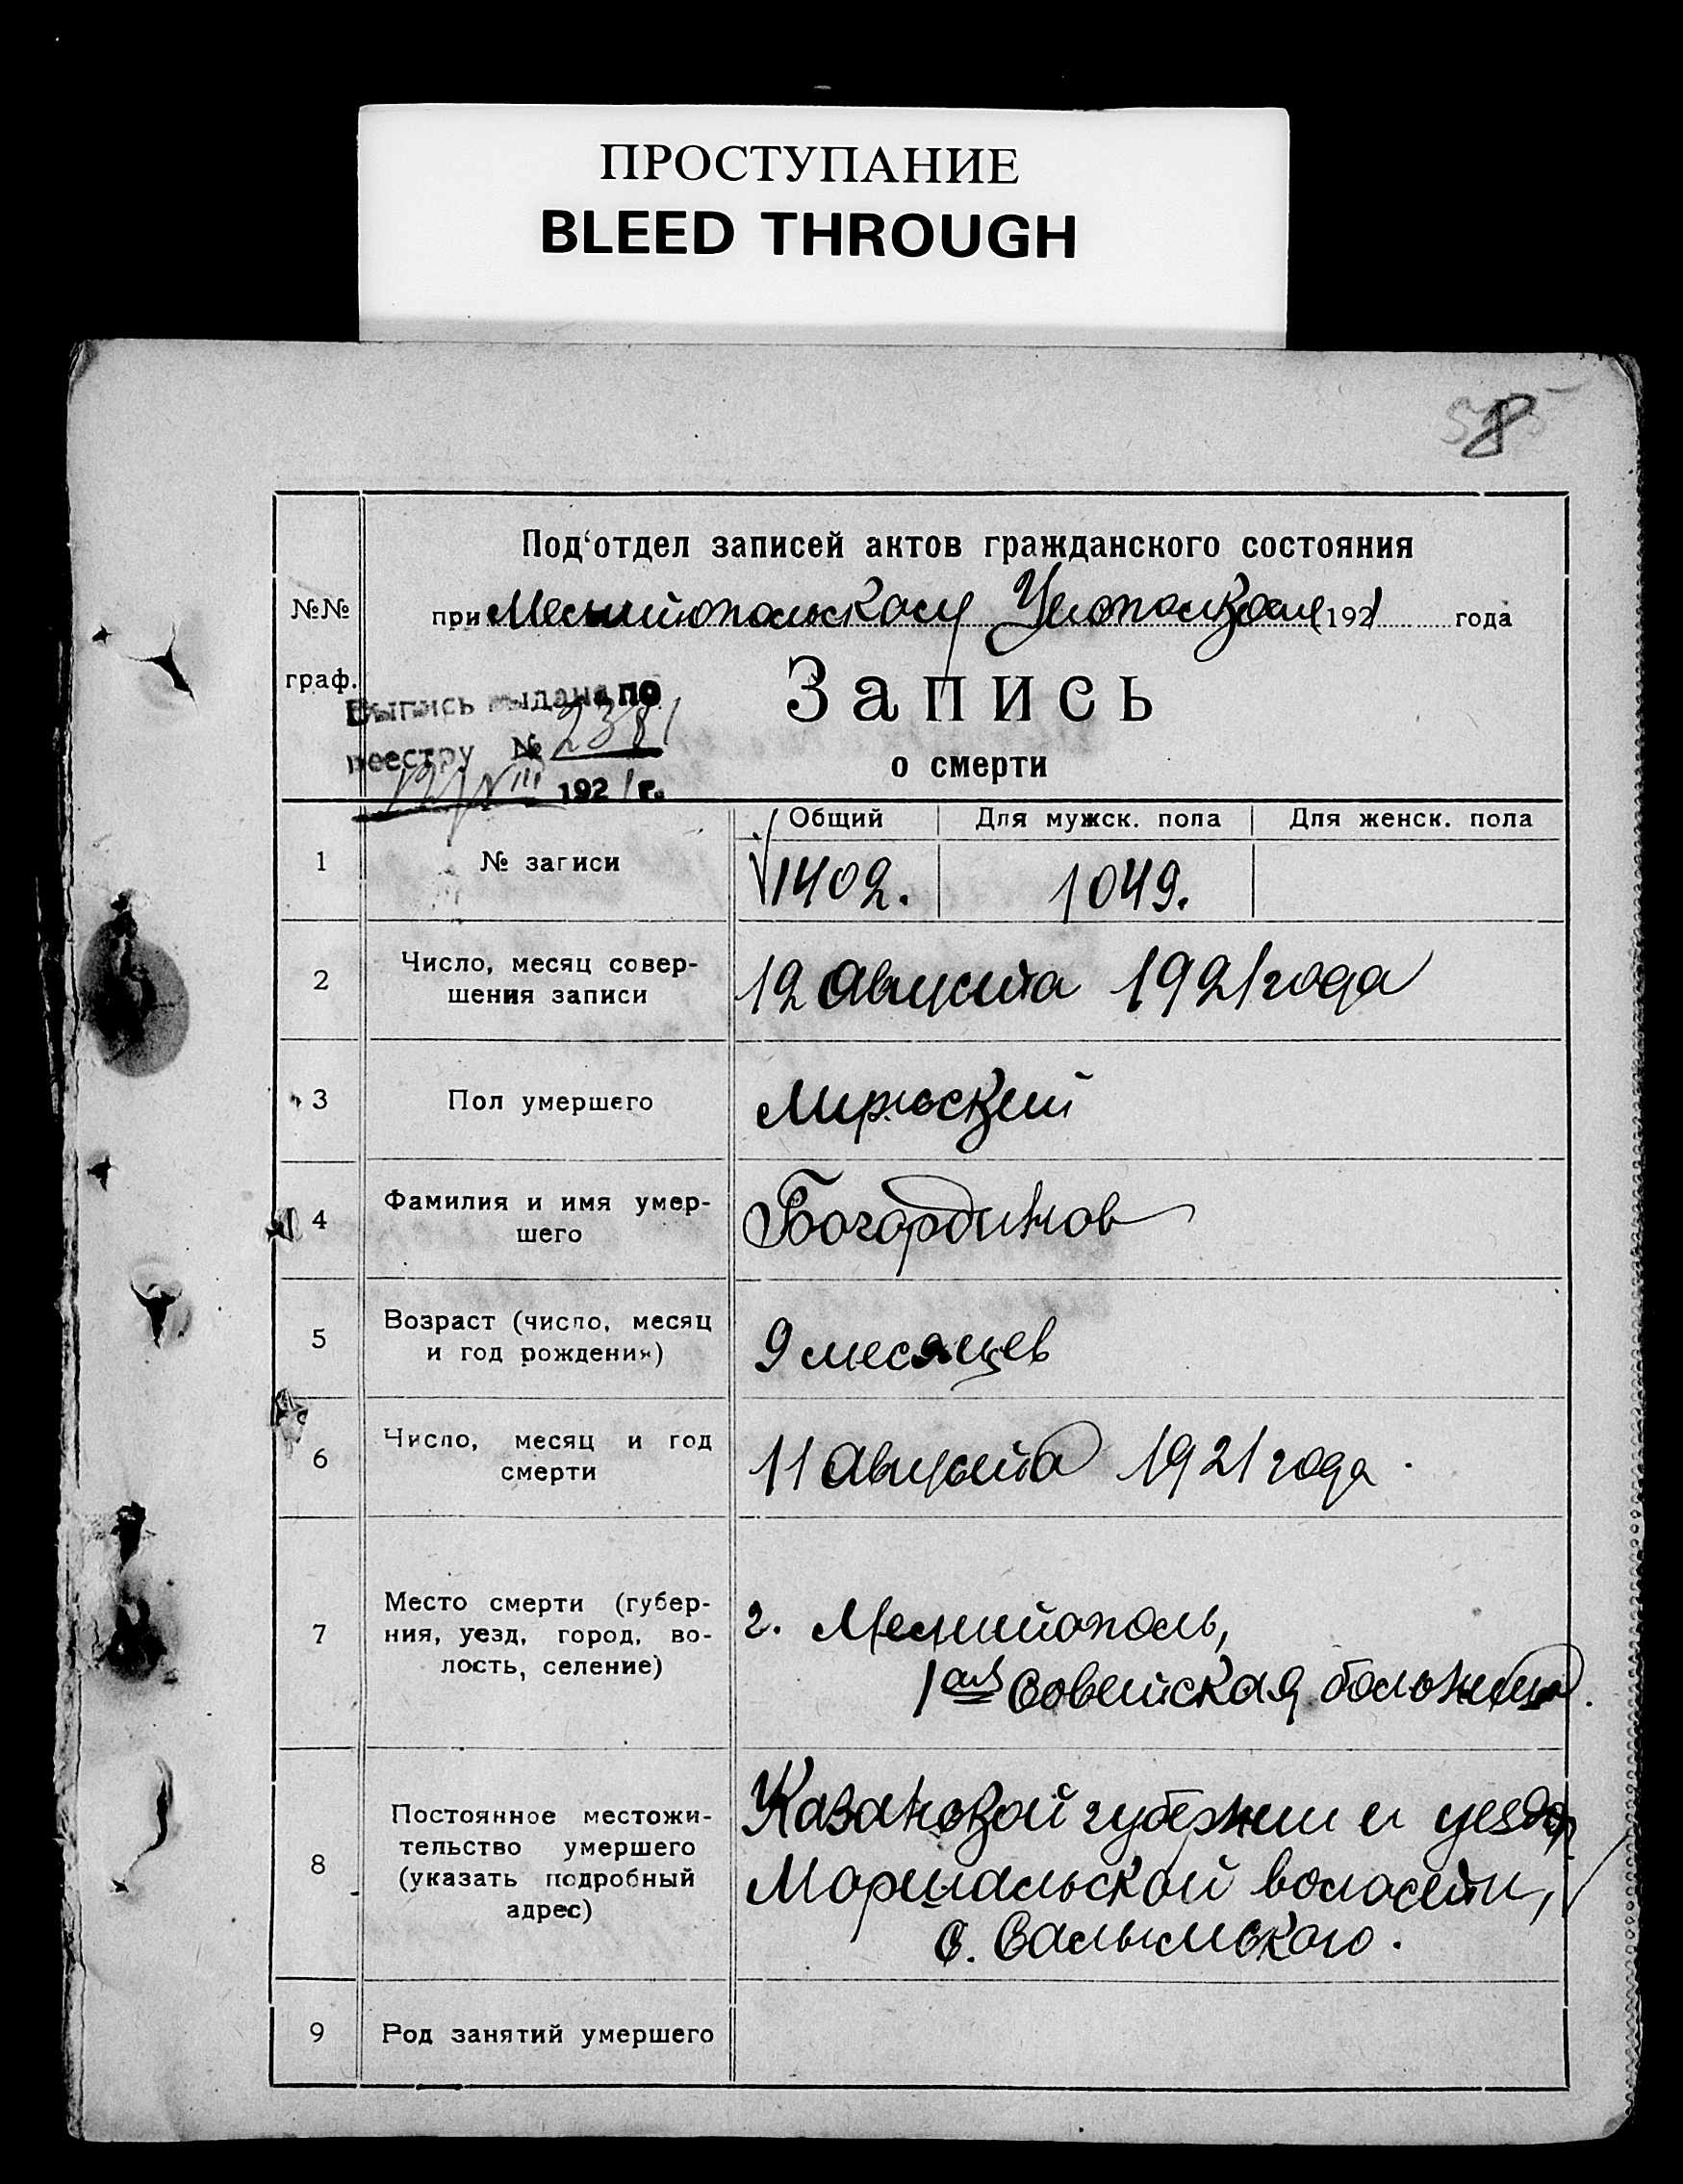 ПРОСТУПАНИЕ
BLEED THROUGH
8
Под‘отдел записей актов гражданского состояния
№№ граф.
при Мелитопольском Уисполкоме 1921 года
Выпись выдана по
реестру № 2381
12/VIII 1921 г.
Запись
о смерти
Общий Для мужск. пола Для женск. пола
1 № записи 1402. 1049.
2 Число, месяц совер-
шения записи 12 Августа 1921 года
3 Пол умершего Мужский
4 Фамилия и имя умер-
шего Богардинов
5 Возраст (число, месяц
и год рождения) 9 месяцев
6 Число, месяц и год
смерти 11 Августа 1921 года.
7 Место смерти (губер-
ния, уезд, город, во-
лость, селение)
г. Мелитополь,
1ая Советская больница.
8 Постоянное местожи-
тельство умершего
(указать подробный
адрес)
Казанской губернии и уезда,
волости,
с.
9 Род занятий умершего